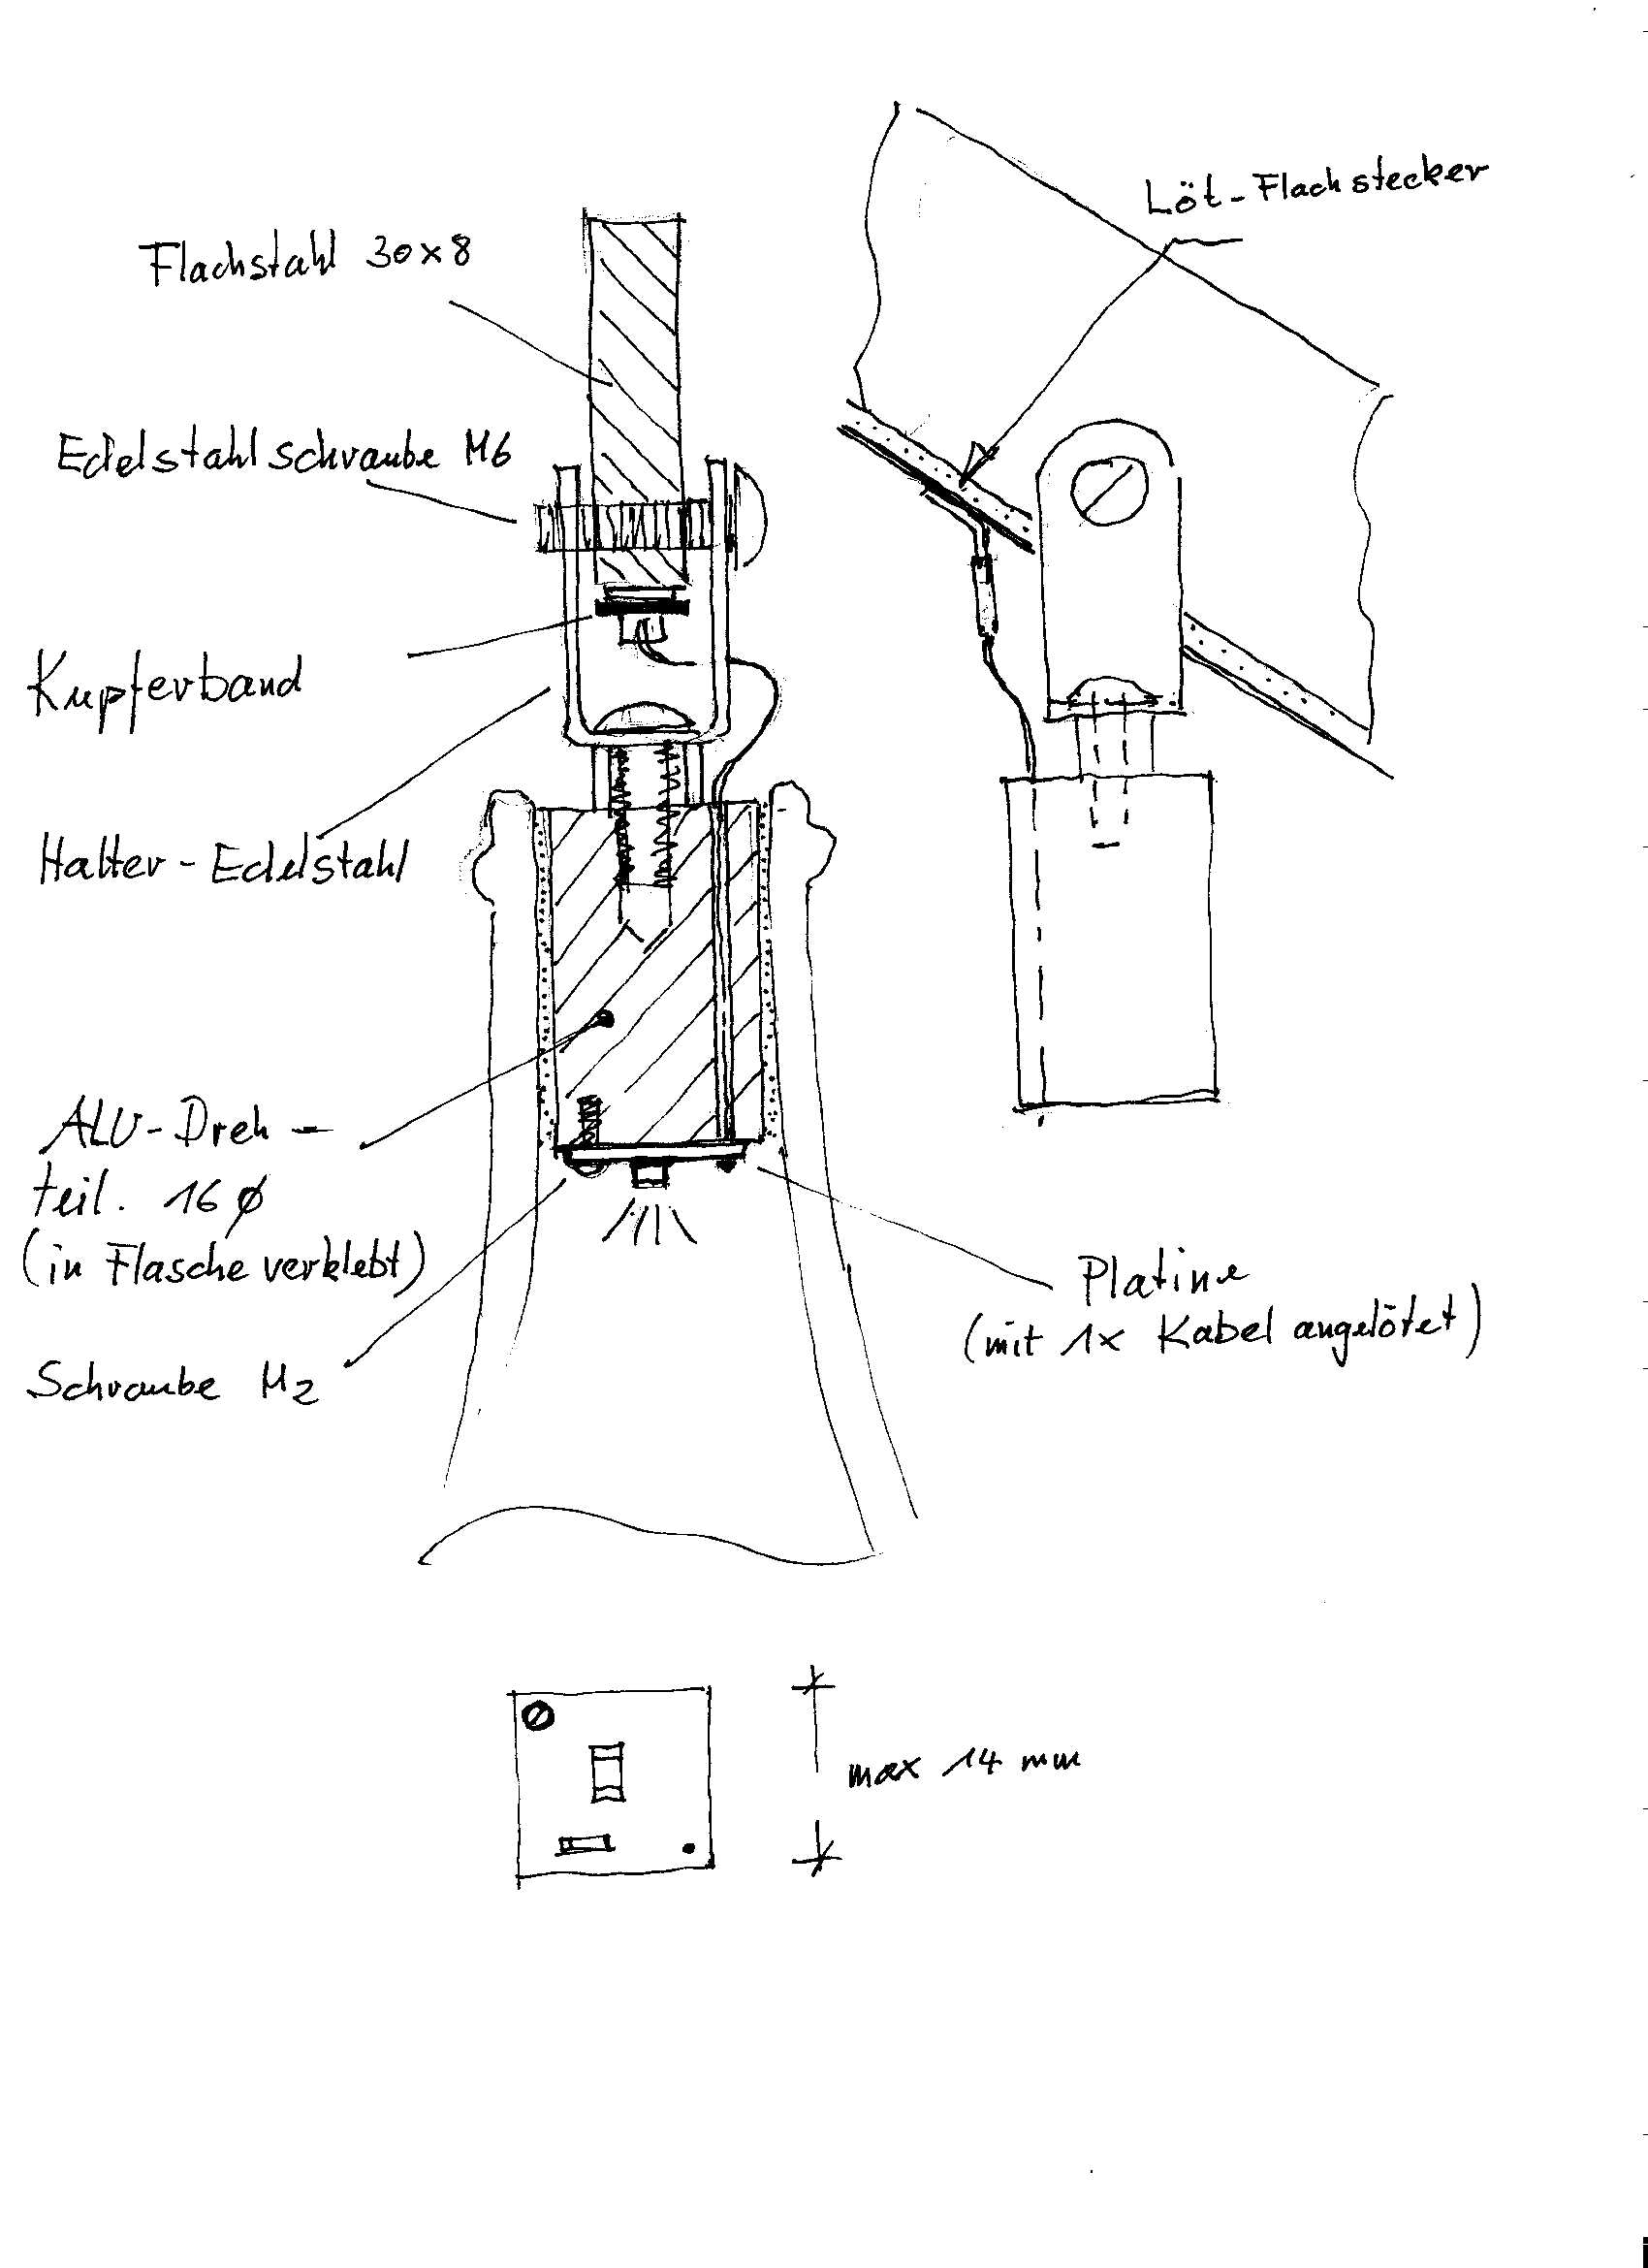 Löt-Flachstecker
Flachstahl 30x8
Edelstahlschraube M6
Kupferband
Halter-Edelstahl
ALU-Dreh-
teil. 16 ø
(in Flasche verklebt)
Schraube M2
Platine
(mit 1x Kabel angelötet)
max 14 mm